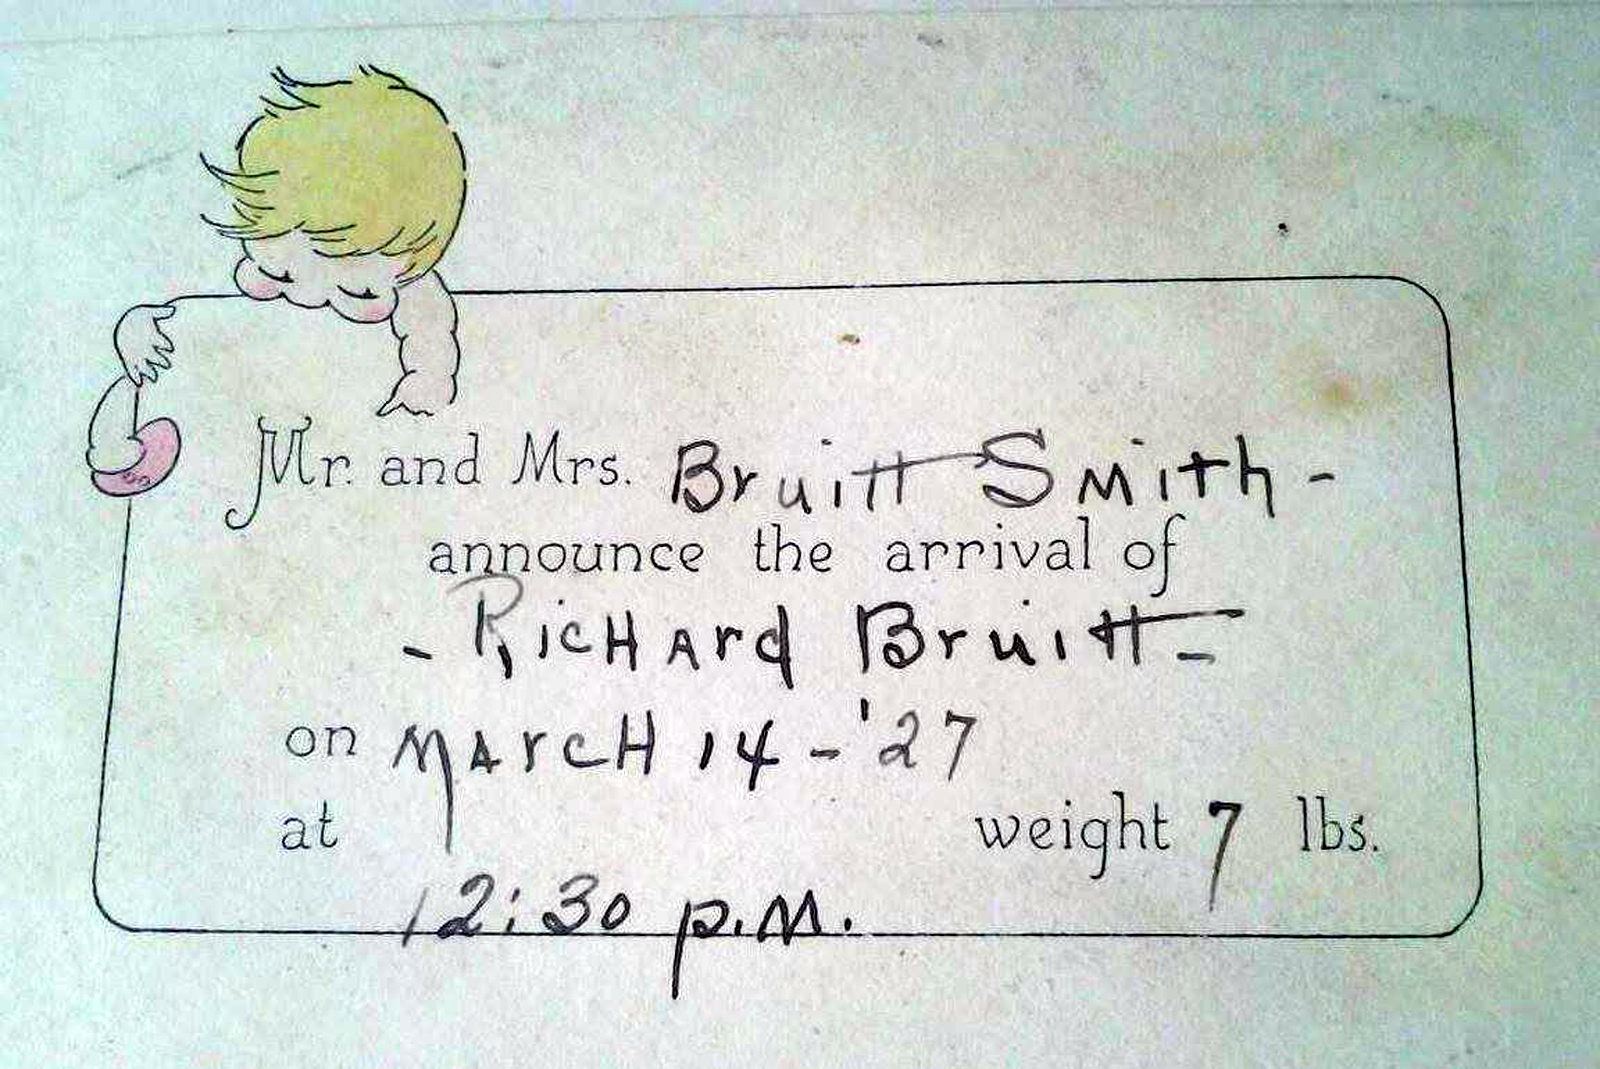 Mr. and Mrs. Bruitt Smith -
announce the arrival of
- Richard Bruitt -
on March 14 - '27
at weight 7 lbs.
12:30 p.m.